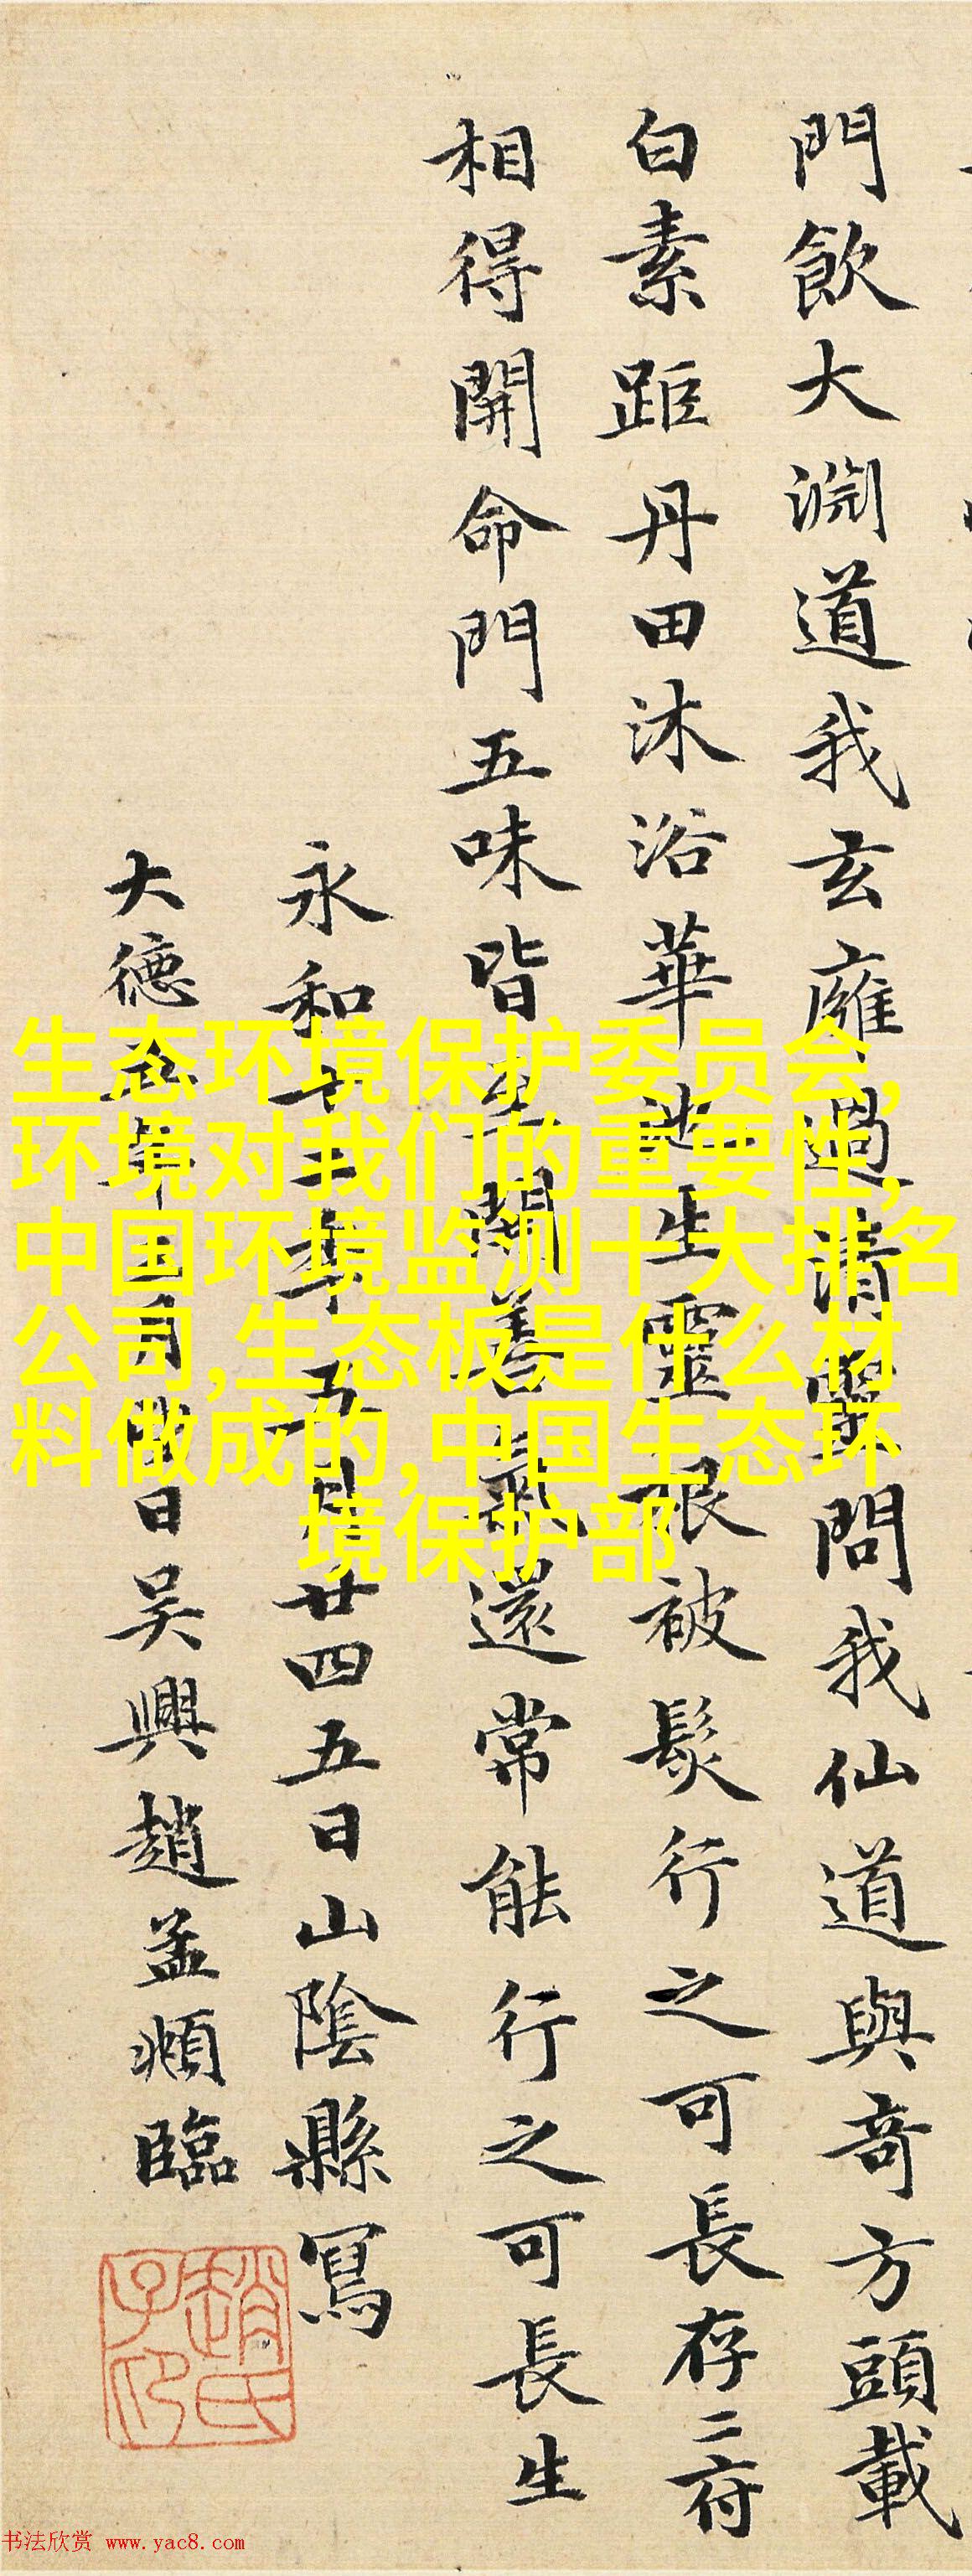 門飲大淵道我玄廱過清靈問我仙道與竒方頭載
白素距丹田沐浴華池生靈根被髮行之可長存二府
相得開命門五味皆至開善氣還常能行之可長生
永和十二年五月廿四五日山陰縣寫
大德年月日吴興趙孟頫臨
趙氏子昂
生态环境保护委员会,
环境对我们的重要性,
中国环境监测十大排名
公司,生态板是什么材
料做成的,中国生态环
境保护部
书法欣赏 www.yac8.com